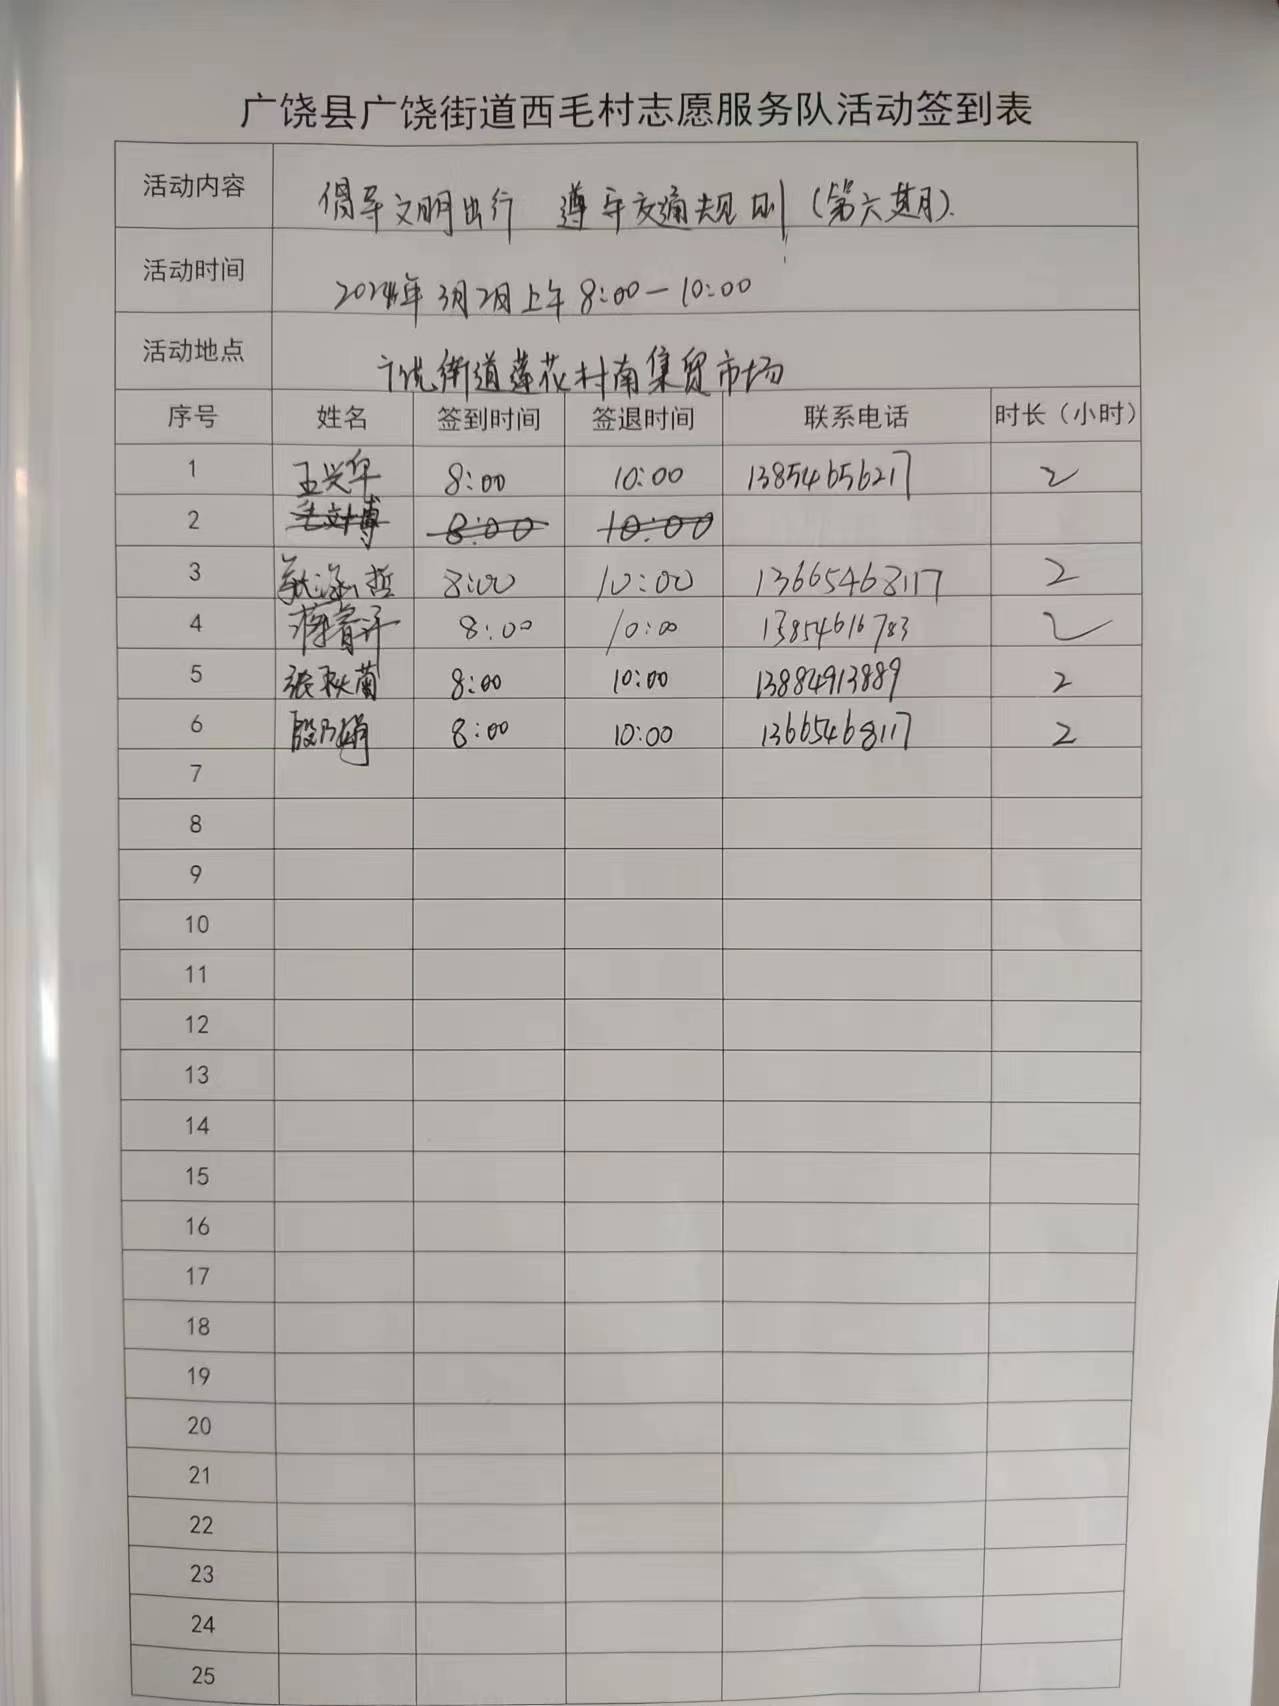 广饶县广饶街道西毛村志愿服务队活动签到表
活动内容 倡导文明出行 遵守交通规则(第六期).
活动时间 2024年3月2日上午8:00—10:00
活动地点 广饶街道莲花村南集贸市场
序号 姓名 签到时间 签退时间 联系电话 时长（小时）
1 王兴华 8:00 10:00 13854656217 2
2 毛文博 8:00 10:00
3 涵哲 8:00 10:00 13665468117 2
4 8:00 10:00 13854616783 2
5 张秋菊 8:00 10:00 13884913889 2
6 殷乃娟 8:00 10:00 13665468117 2
7
8
9
10
11
12
13
14
15
16
17
18
19
20
21
22
23
24
25